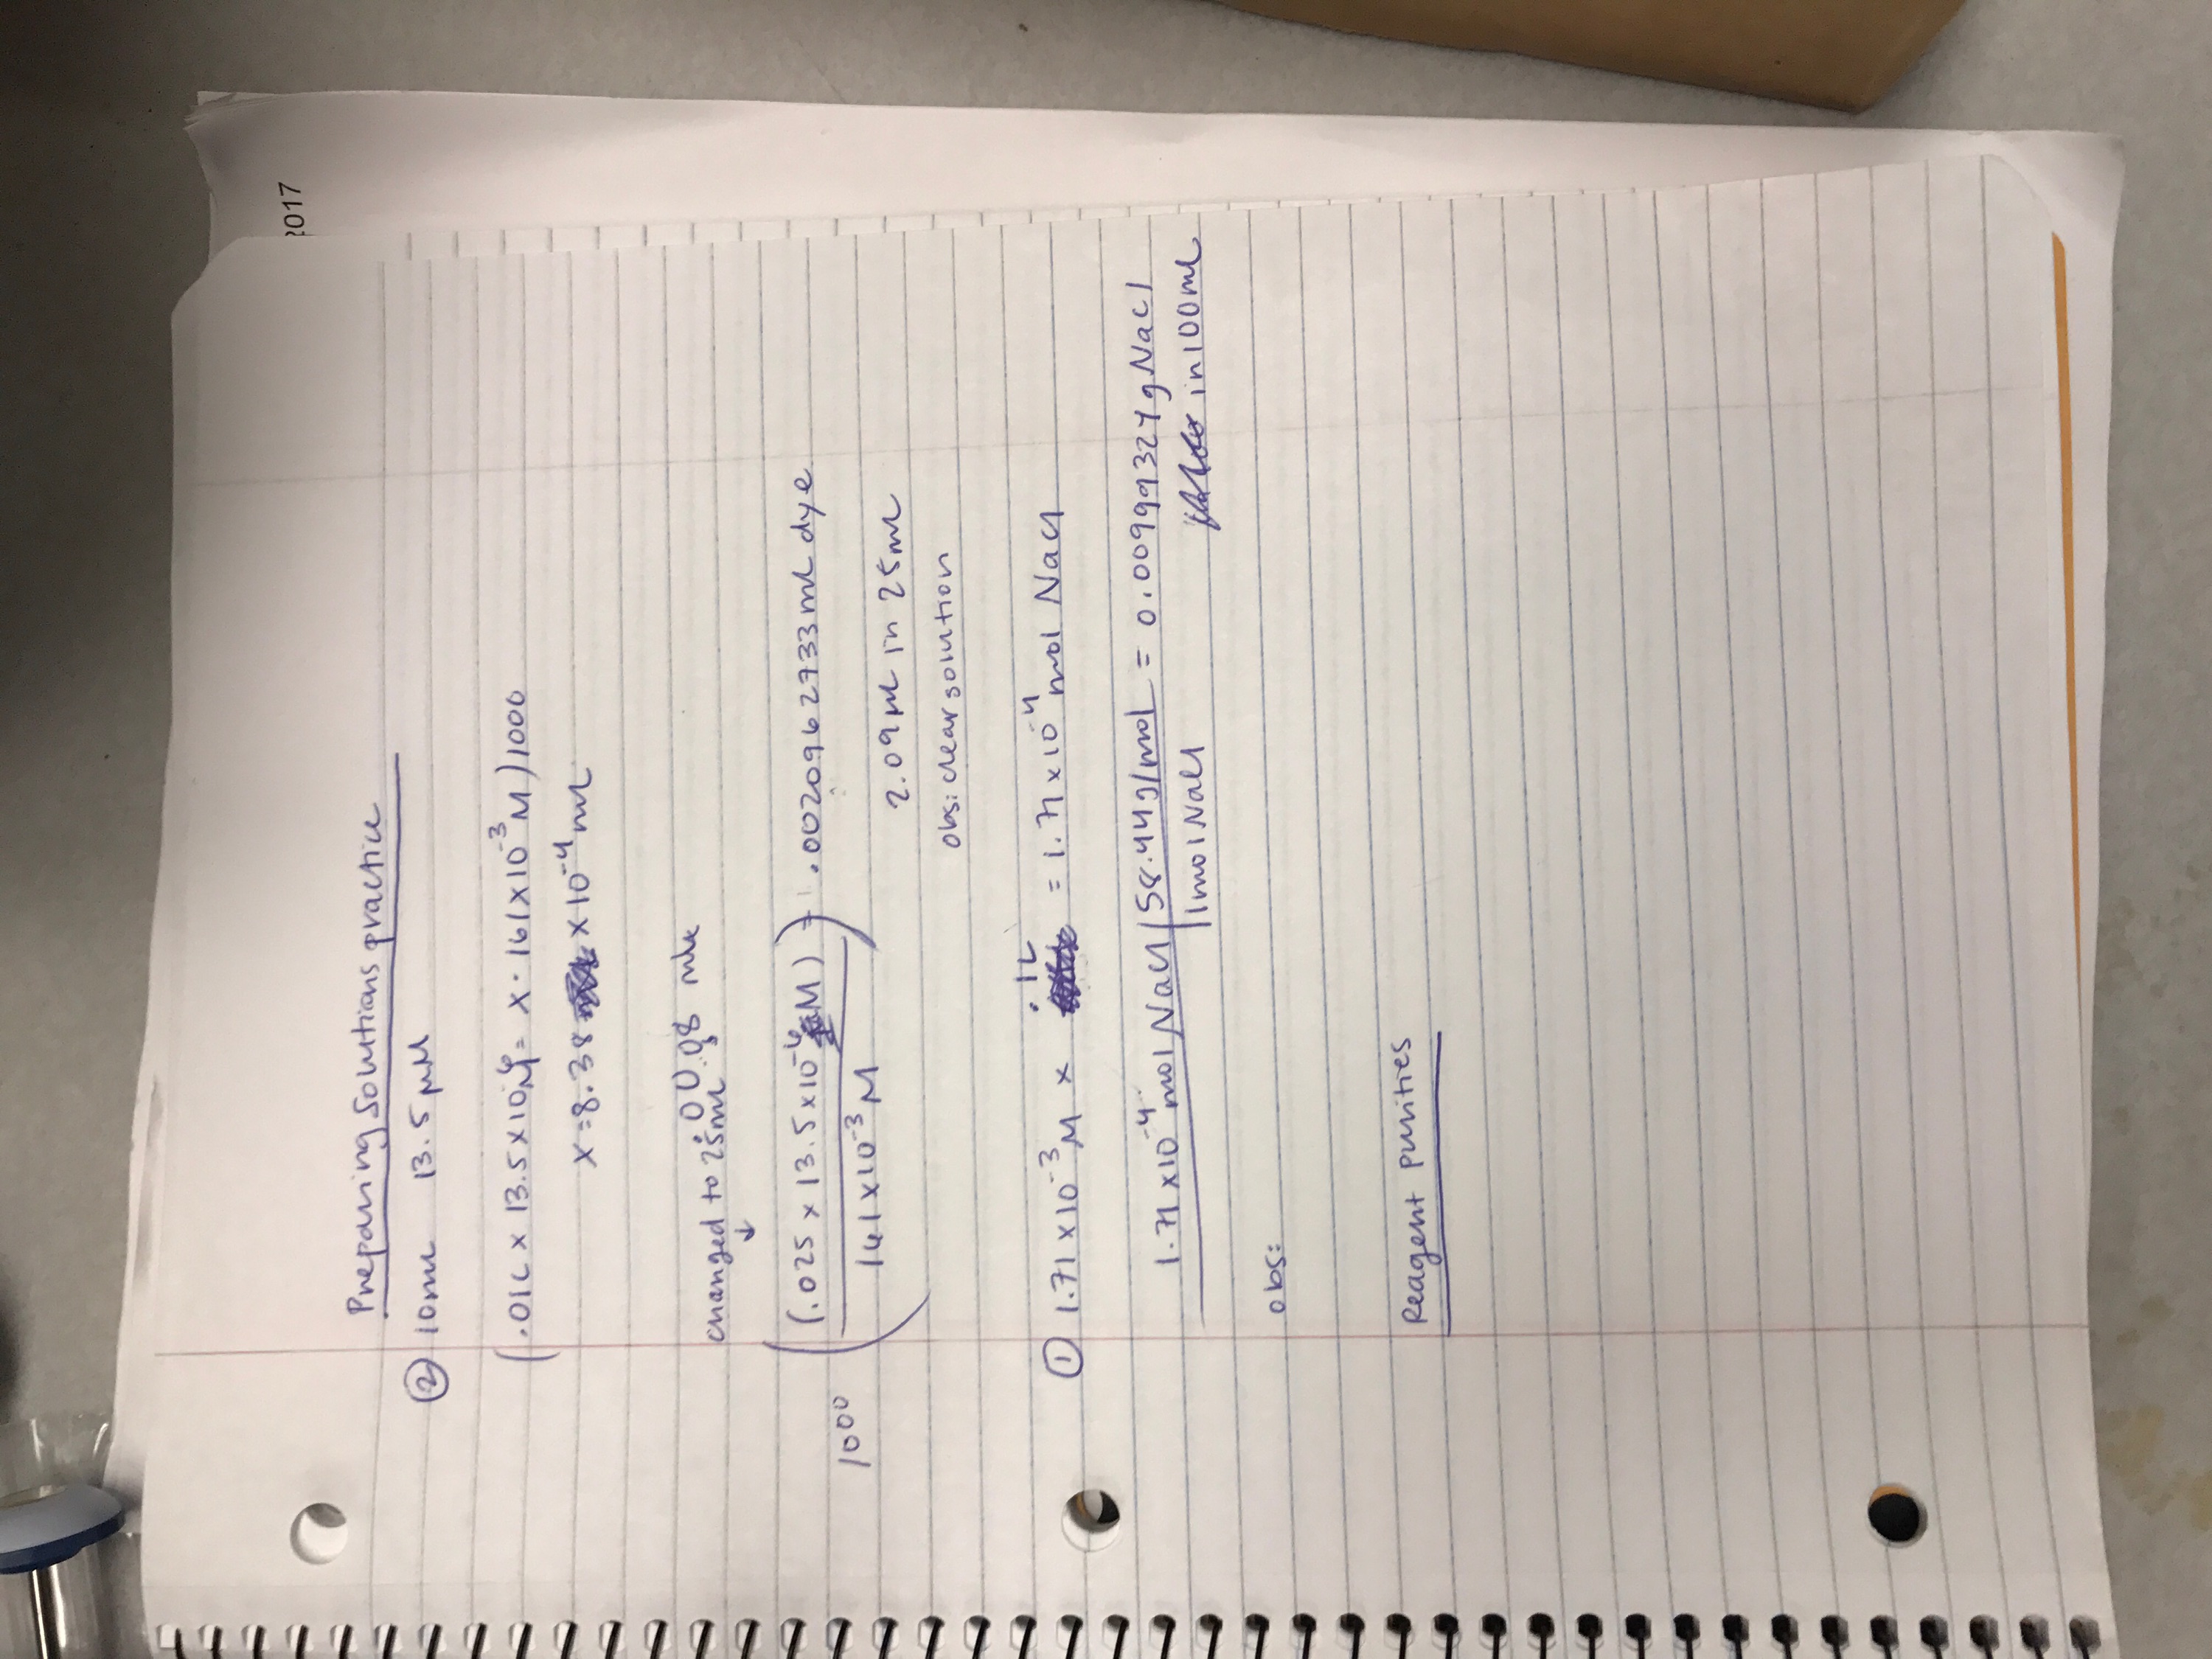 2017
Preparing Solutions practice
② 10mL 13.5 µM
(.01L x 13.5x10⁻⁶ = x · 161x10⁻³ M)1000
x = 8.38 x10⁻⁴ mL
changed to 25mL
↓
1000 ((.025 x 13.5x10⁻⁶ M) / 161x10⁻³ M) = .002096 2733 mL dye
2.09 µL in 25mL
obs: clear solution
① 1.71x10⁻³ M x .1L = 1.71x10⁻⁴ mol NaCl
1.71x10⁻⁴ mol NaCl | 58.44g/mol = 0.00999324 g NaCl
1mol NaCl in 100mL
obs:
Reagent purities